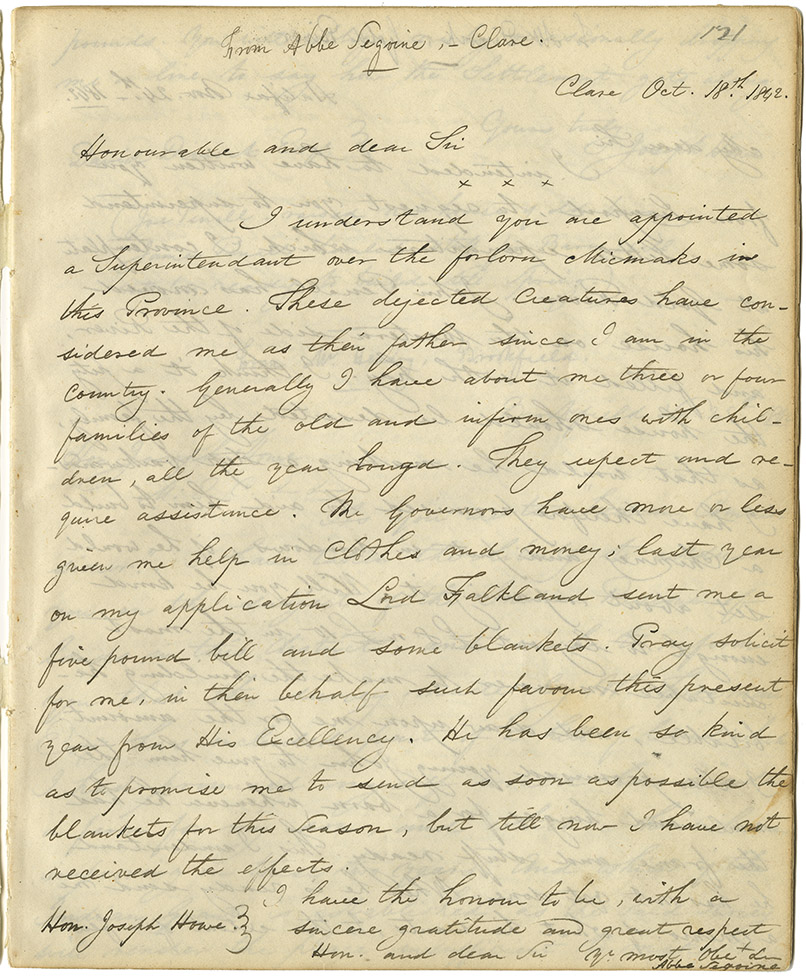 121
From Abbe Segoine, – Clare.
Clare Oct. 18th. 1842.
Honourable and dear Sir
x x x
I understand you are appointed
a Superintendant over the forlorn Micmaks in
this Province. These dejected Creatures have con-
sidered me as their father since I am in the
Country. Generally I have about me three or four
families of the old and infirm ones with chil-
dren, all the year
They expect and re-
quire assistance. The Governors have more or less
given me help in Clothes and money; last year
on my application Lord Falkland sent me a
five pound bill and some blankets. Pray solicit
for me, in their behalf such favour this present
year from His Excellency. He has been so kind
as to promise me to send as soon as possible the
blankets for this Season, but till now I have not
received the effects.
I have the honour to be, with a
Hon. Joseph Howe. } sincere gratitude and great respect
Hon. and dear Sir yr most Obt
Abbe Segoine